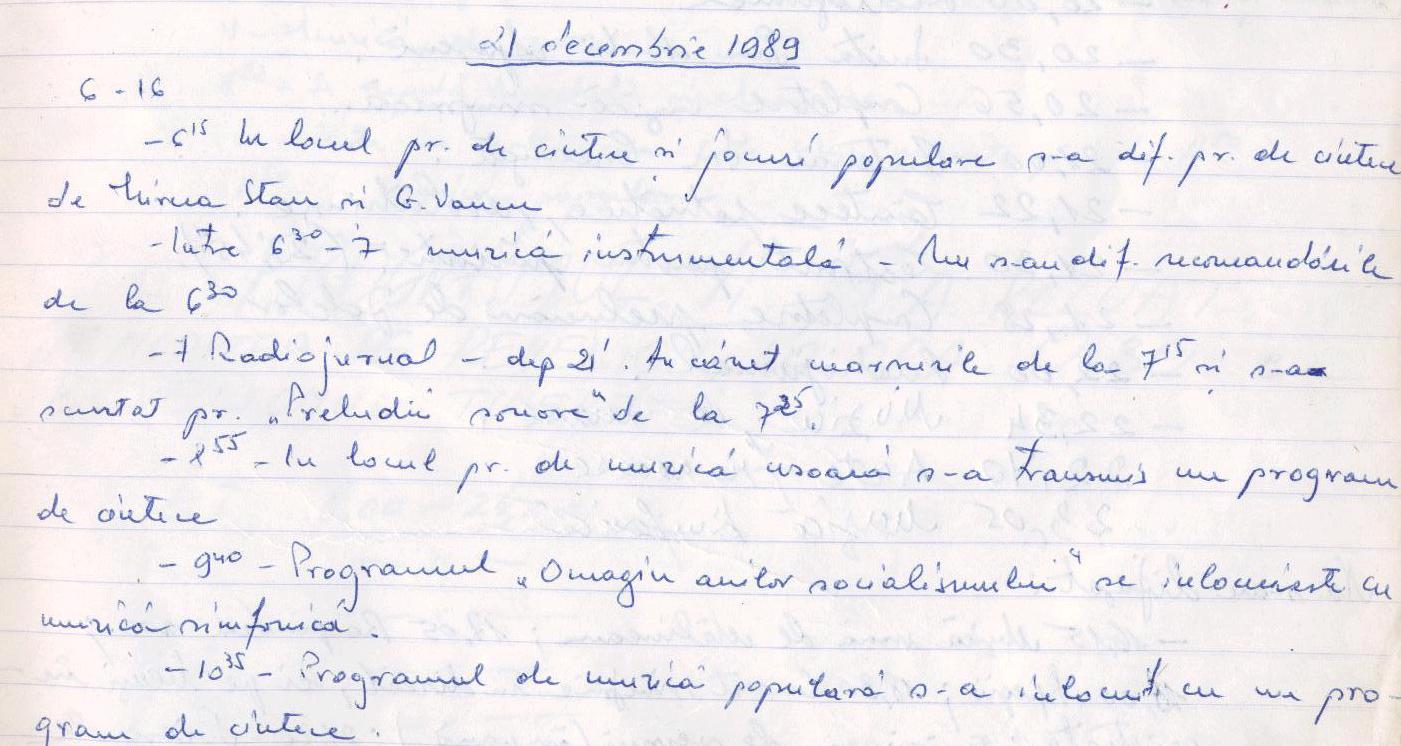 21 decembrie 1989
6 - 16
- 6¹⁵ In locul pr. de cîntece și jocuri populare s-a dif. pr. de cîntece
de Mircea Stan și G. Vancu
- Intre 6³⁰ - 7 muzică instrumentală - Nu s-au dif. recomandările
de la 6³⁰
- 7 Radiojurnal - dep 21'. Au căzut de la 7¹⁵ și s-a
scurtat pr. „Preludii sonore" de la 7²⁵.
- 8⁵⁵ - In locul pr. de muzică usoară s-a transmis un program
de cîntece
- 9⁴⁰ - Programul „Omagiu anilor socialismului" se inlocuiește cu
muzică simfonică.
- 10³⁵ - Programul de muzică populară s-a inlocuit cu un pro-
gram de cîntece.